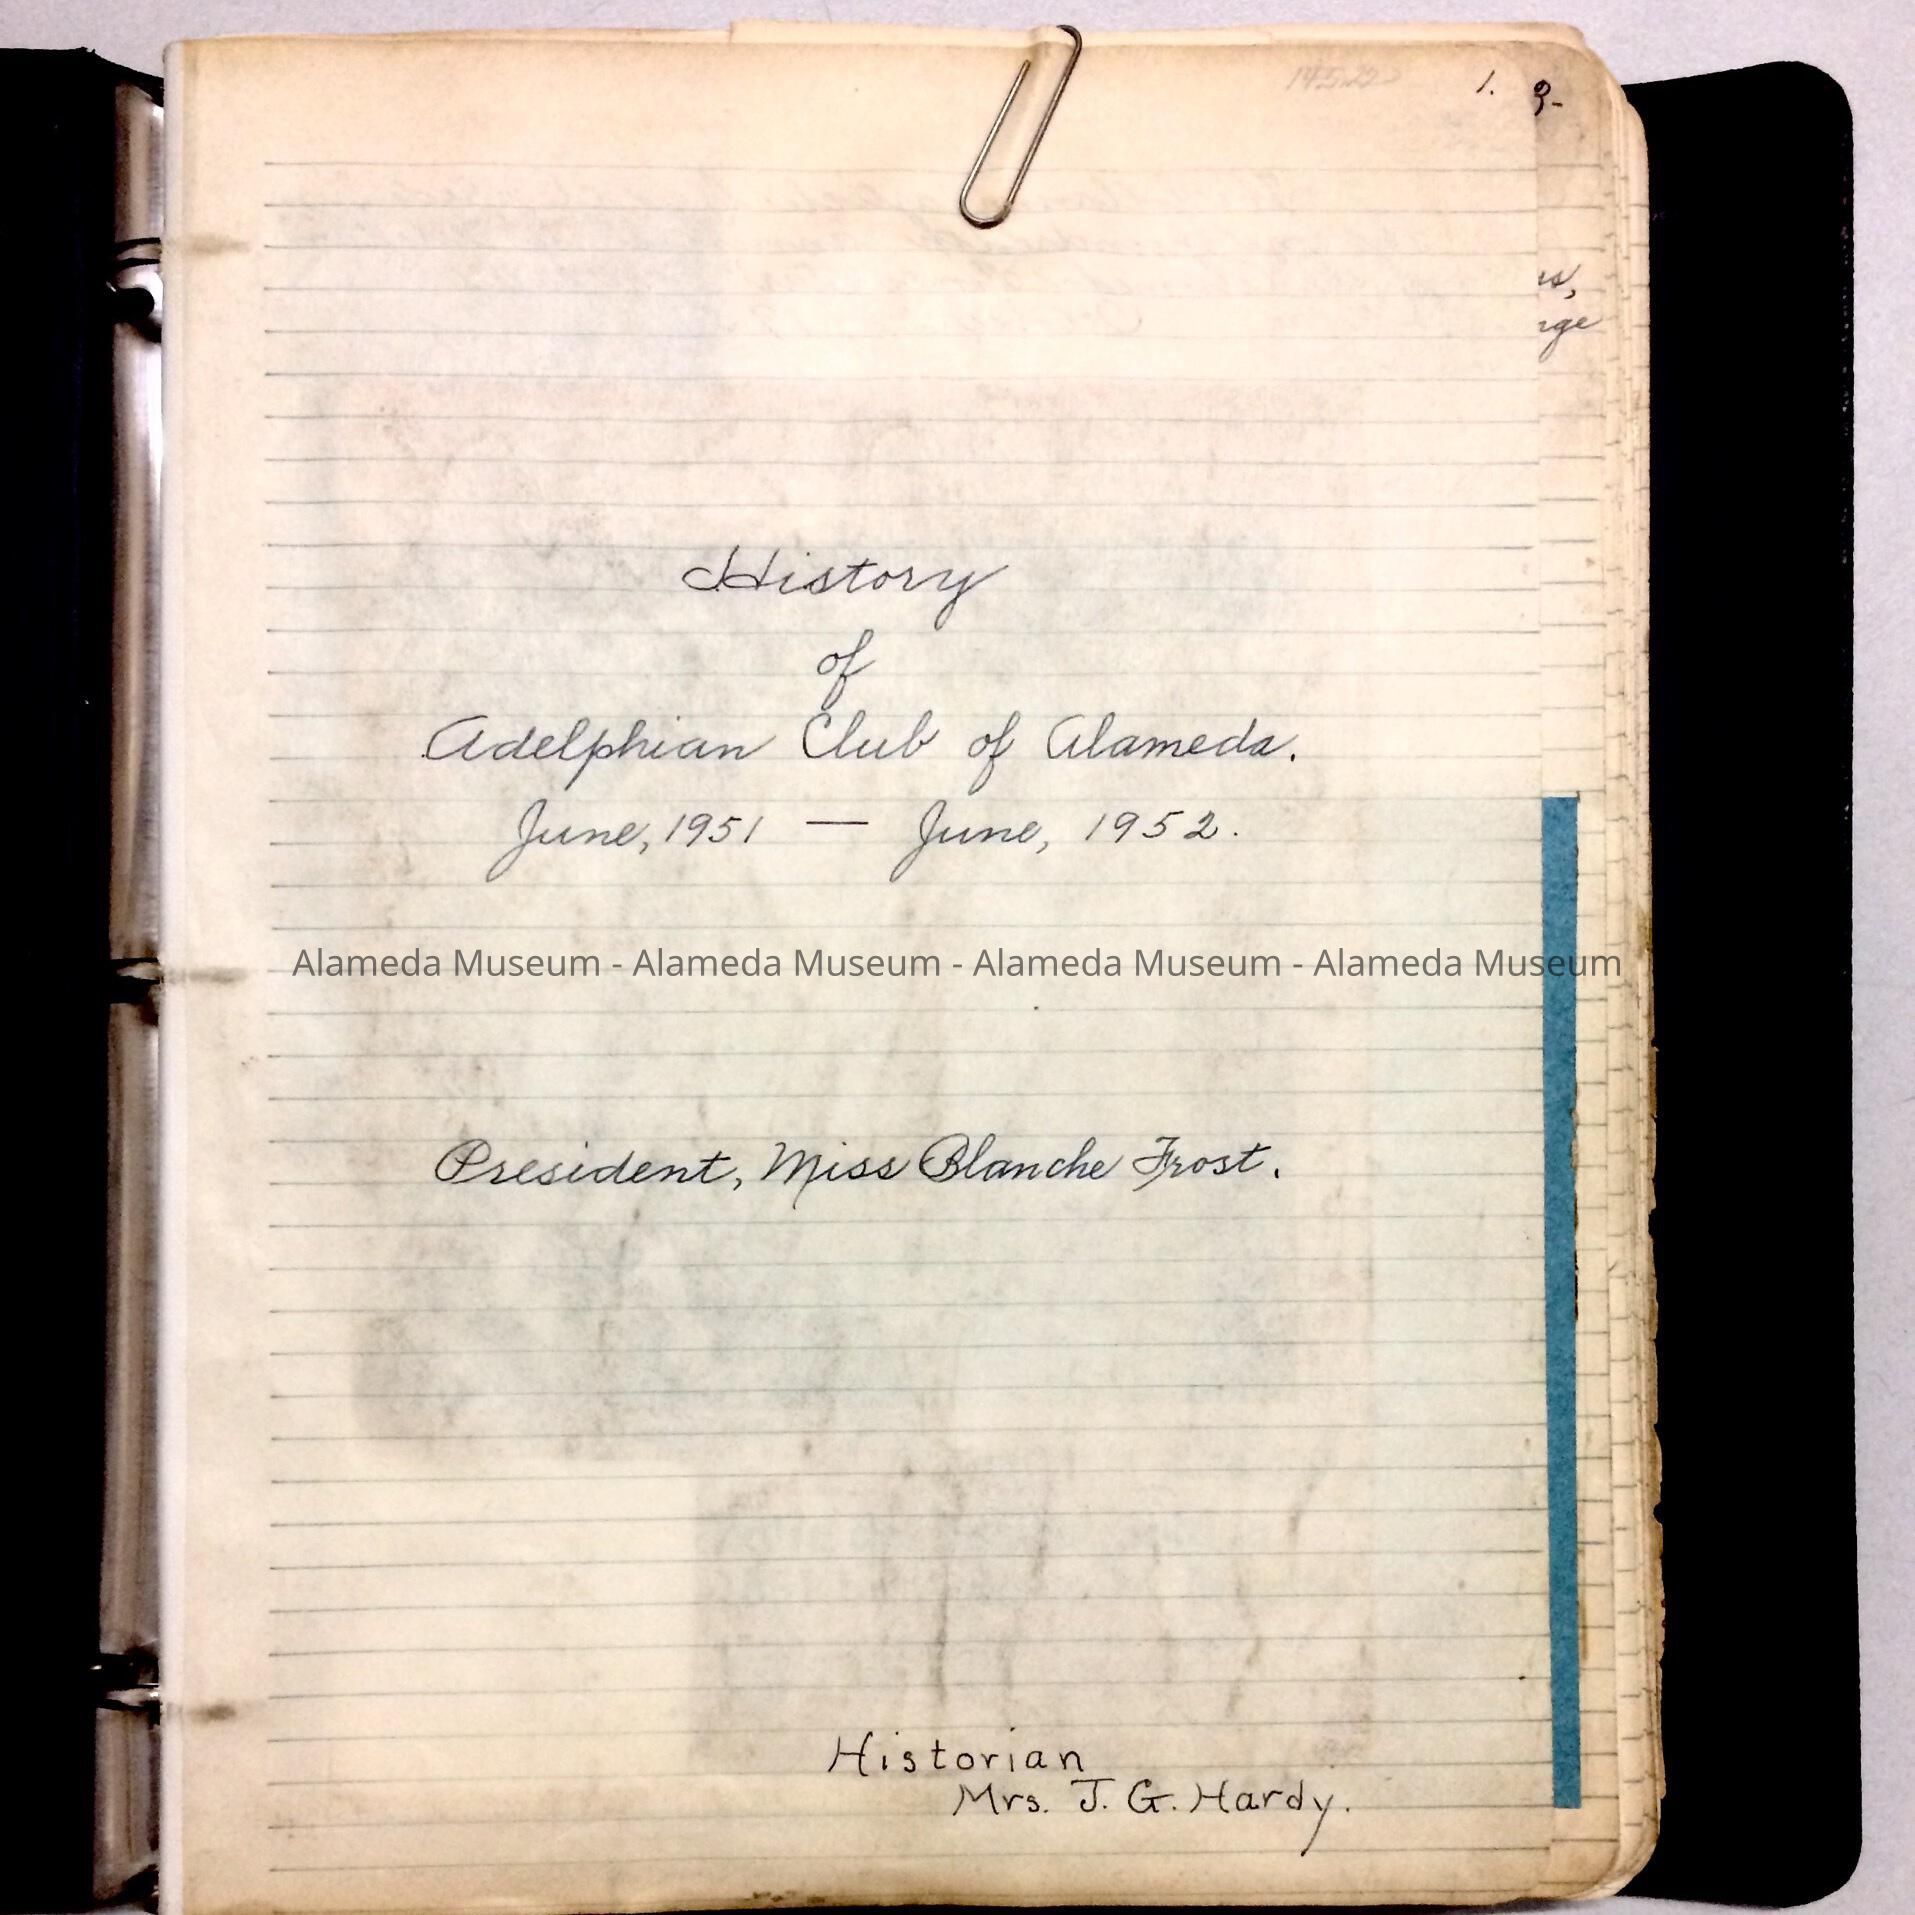 1.
3-
rs,
rge
History
of
Adelphian Club of Alameda.
June, 1951 — June, 1952.
Alameda Museum - Alameda Museum - Alameda Museum - Alameda Museum
President, Miss Blanche Frost.
Historian
Mrs. J. G. Hardy.